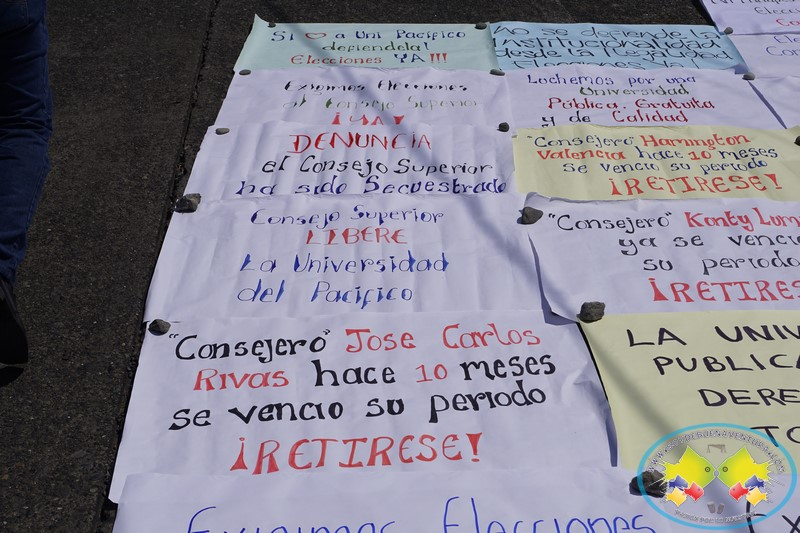 Si a Uni Pacífico
defiendela!
Elecciones YA !!!
Exigimos Elecciones
al Consejo Superior
¡YA!
DENUNCIA
el Consejo Superior
ha sido Secuestrado
Consejo Superior
LIBERE
La Universidad
del Pacífico
"Consejero" Jose Carlos
Rivas hace 10 meses
se vencio su periodo
¡RETIRESE!
Exigimos Elecciones
No se defiende la
Institucionalidad
desde la
Elecciones Ya
Luchemos por una
Universidad
Pública, Gratuita
y de Calidad
"Consejero" Hamington
Valencia hace 10 meses
se vencio su periodo
¡RETIRESE!
"Consejero" Kenty
ya se vencio
su periodo
¡RETIRES
LA UNIV
PUBLICA
DERE